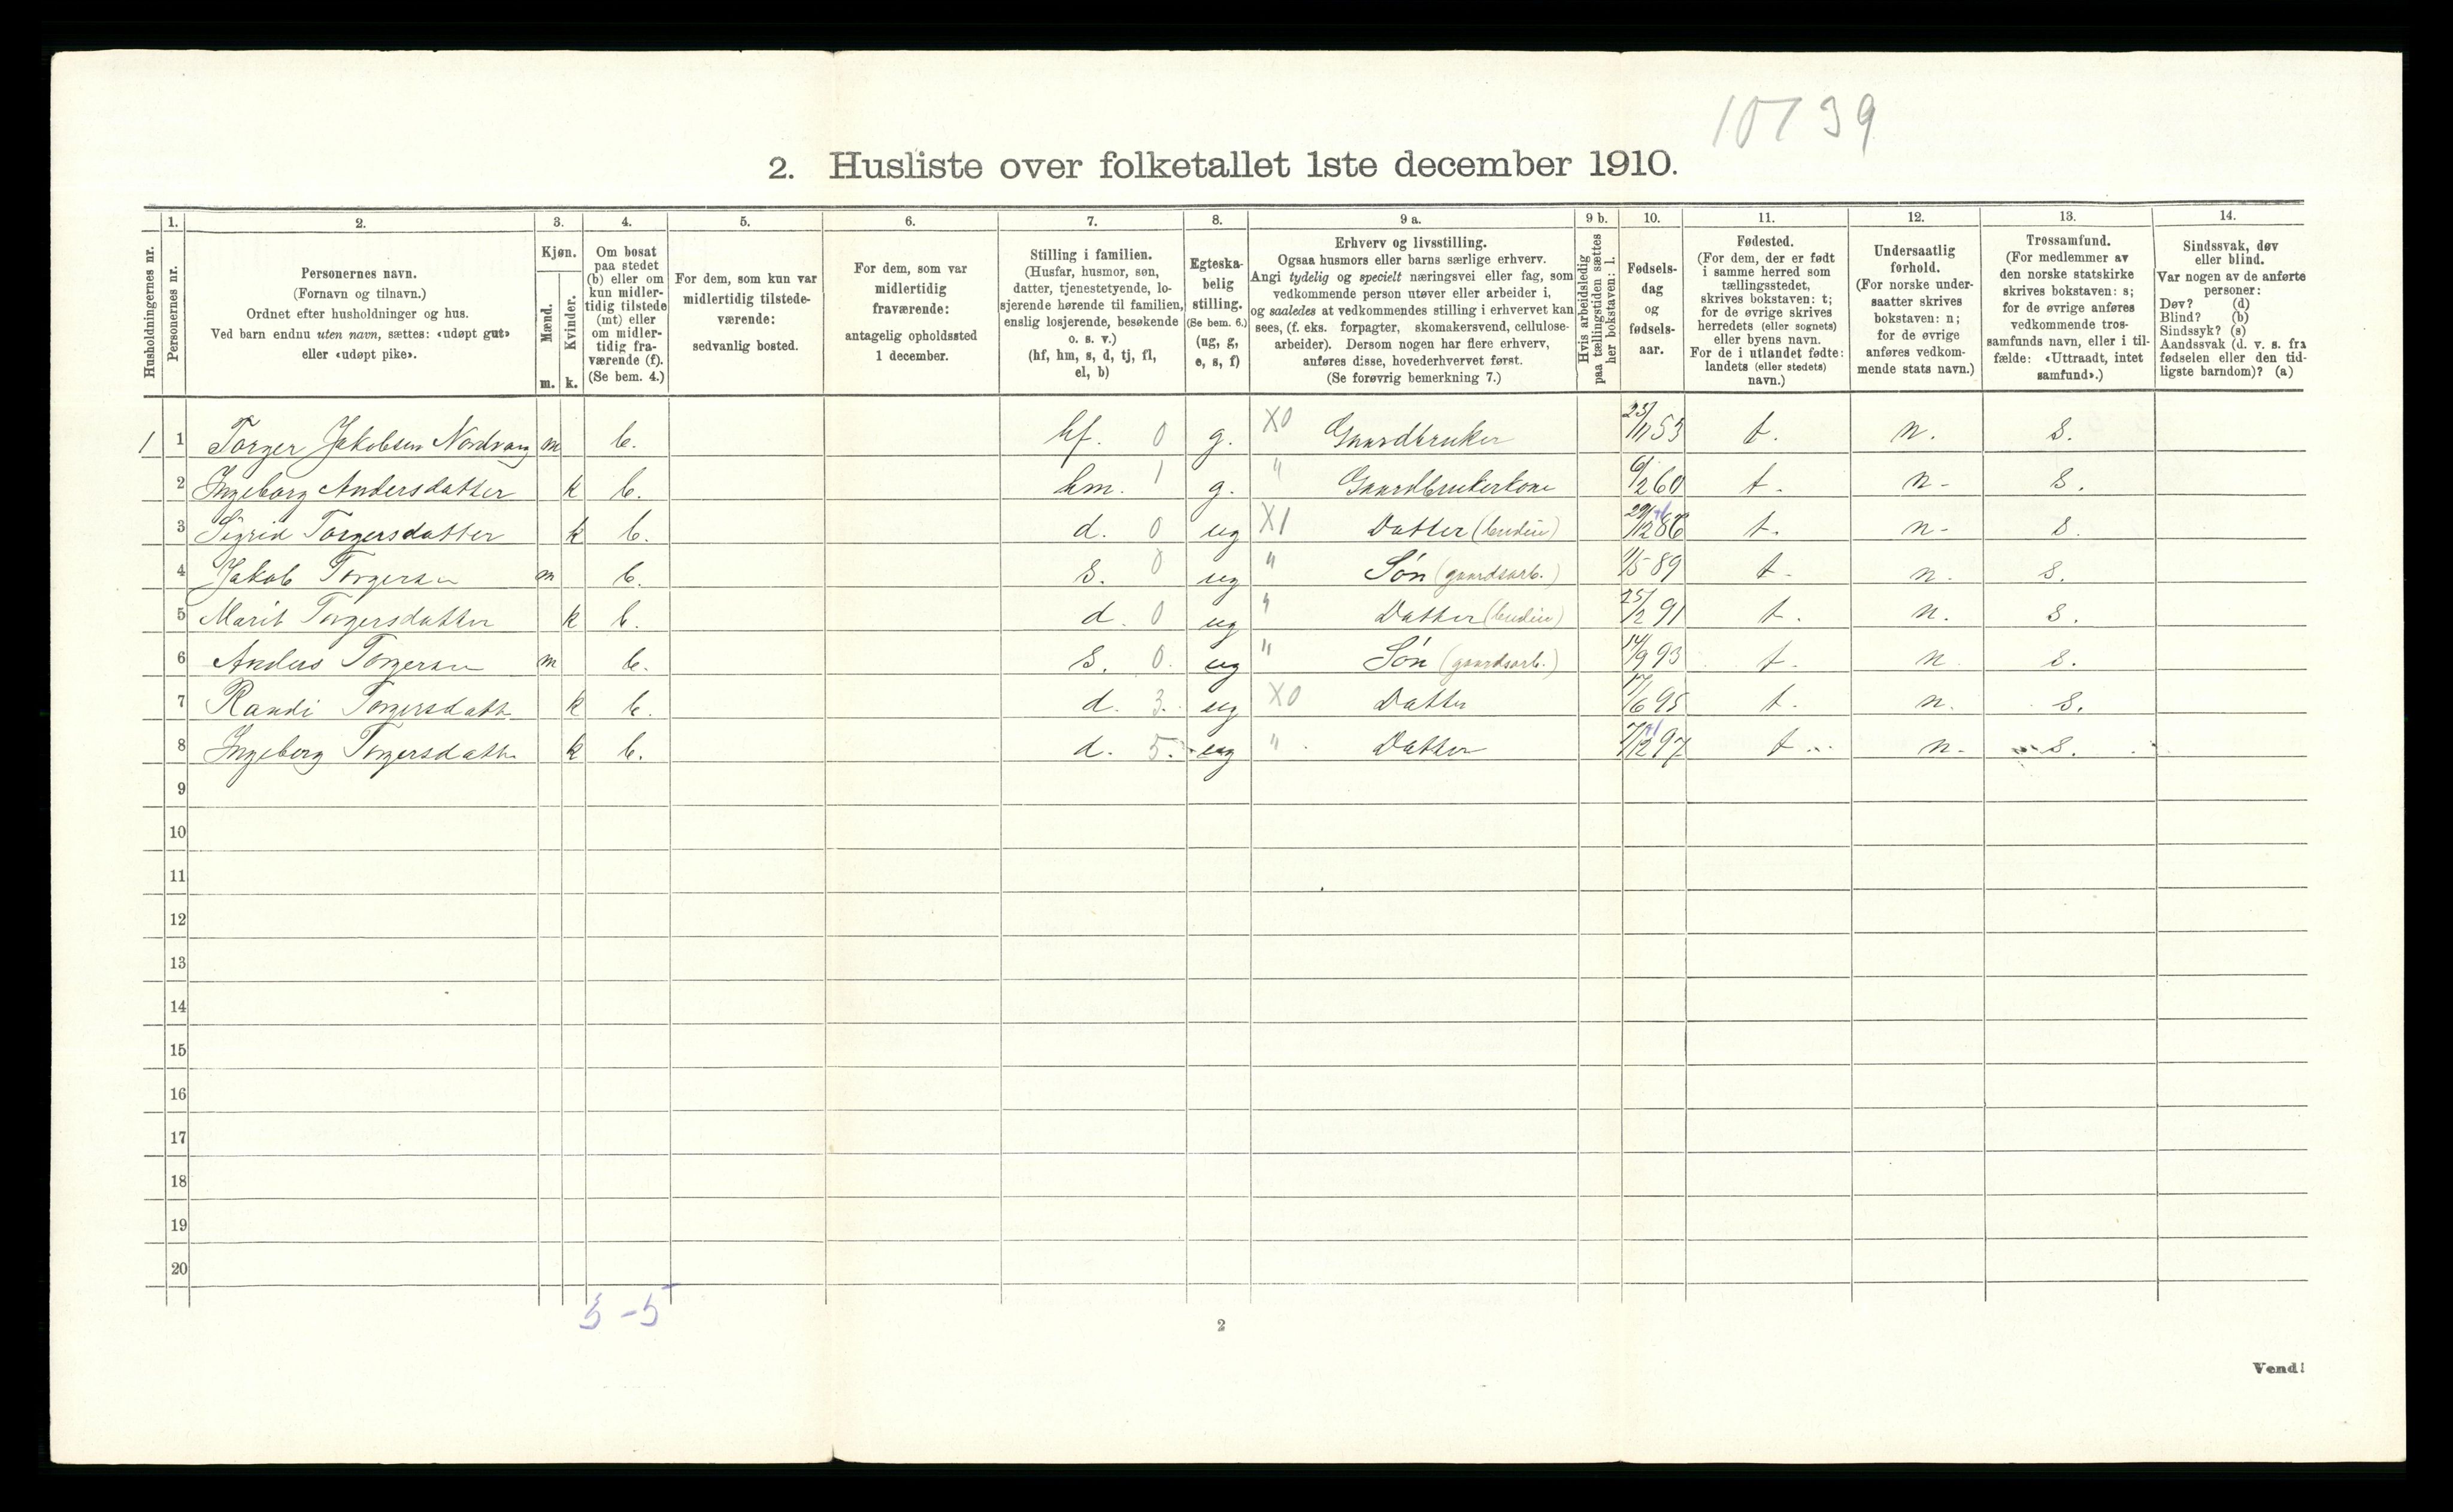 10739
2. Husliste over folketallet 1ste december 1910.
1. 2. 3. 4. 5. 6. 7. 8. 9 a. 9 b. 10. 11. 12. 13. 14.
Husholdningernes nr.
Personernes nr.
Personernes navn.
(Fornavn og tilnavn.)
Ordnet efter husholdninger og hus.
Ved barn endnu uten navn, sættes: «udøpt gut»
eller «udøpt pike».
Kjøn.
Mænd.
Kvinder.
m. k.
Om bosat
paa stedet
(b) eller om
kun midler-
tidig tilstede
(mt) eller
om midler-
tidig fra-
værende (f).
(Se bem. 4.)
For dem, som kun var
midlertidig tilstede-
værende:
sedvanlig bosted.
For dem, som var
midlertidig
fraværende:
antagelig opholdssted
1 december.
Stilling i familien.
(Husfar, husmor, søn,
datter, tjenestetyende, lo-
sjerende hørende til familien,
enslig losjerende, besøkende
o. s. v.)
(hf, hm, s, d, tj, fl,
el, b)
Egteska-
belig
stilling.
(Se bem. 6.)
(ug, g,
e, s, f)
Erhverv og livsstilling.
Ogsaa husmors eller barns særlige erhverv.
Angi tydelig og specielt næringsvei eller fag, som
vedkommende person utøver eller arbeider i,
og saaledes at vedkommendes stilling i erhvervet kan
sees, (f. eks. forpagter, skomakersvend, cellulose-
arbeider). Dersom nogen har flere erhverv,
anføres disse, hovederhvervet først.
(Se forøvrig bemerkning 7.)
Hvis arbeidsledig
paa tællingstiden sættes
her bokstaven: l.
Fødsels-
dag
og
fødsels-
aar.
Fødested.
(For dem, der er født
i samme herred som
tællingsstedet,
skrives bokstaven: t;
for de øvrige skrives
herredets (eller sognets)
eller byens navn.
For de i utlandet fødte:
landets (eller stedets)
navn.)
Undersaatlig
forhold.
(For norske under-
saatter skrives
bokstaven: n;
for de øvrige
anføres vedkom-
mende stats navn.)
Trossamfund.
(For medlemmer av
den norske statskirke
skrives bokstaven: s;
for de øvrige anføres
vedkommende tros-
samfunds navn, eller i til-
fælde: «Uttraadt, intet
samfund».)
Sindssvak, døv
eller blind.
Var nogen av de anførte
personer:
Døv? (d)
Blind? (b)
Sindssyk? (s)
Aandssvak (d. v. s. fra
fødselen eller den tid-
ligste barndom)? (a)
1 1 Torger Jakobsen Nordvang m b. hf. 0 g. X0 Gaardbruker 23/11 53 t. n. s.
2 Ingeborg Andersdatter k b. hm. 1 g. " Gaardbrukerkone 6/2 60 t. n. s.
3 Sigrid Torgersdatter k b. d. 0 ug X1 Datter (budeie) 29/12 86 t. n. s.
4 Jakob Torgersen m b. s. 0 ug " Søn (gaardsarb.) 1/5 89 t. n. s.
5 Marit Torgersdatter k b. d. 0 ug " Datter (budeie) 25/2 91 t. n. s.
6 Anders Torgersen m b. s. 0. ug " Søn (gaardsarb.) 14/9 93 t. n. s.
7 Randi Torgersdatt k b. d. 3. ug X0 Datter 17/6 95 t. n. s.
8 Ingeborg Torgersdatt k b. d. 5. ug " Datter 7/12 97 t. n. s.
9
10
11
12
13
14
15
16
17
18
19
20
3-5
2
Vend!